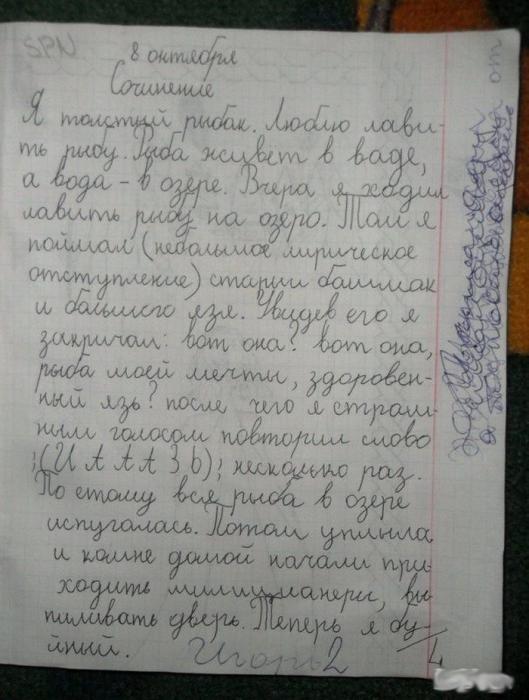 SPN
8 октября
Сочинение
Я толстый рыбак. Люблю лави-
ть рыбу. Рыба жывет в ваде,
а вода - в озере. Вчера я ходил
лавить рыбу на озеро. Там я
поймал (небольшое лирическое
отступление) старии башмак
и бальшого язя. Увидев его я
закричал: вот она? вот она,
рыба моей мечты, здоровен-
ный язь? после чего я страш-
ным голосом повторил слово
;(И А А А З Ь); несколько раз.
По етому вся рыба в озере
испугалась. Потом уплыла
и комне домой начали при
ходить милицианеры, вы
пиливать дверь. Теперь я бу-
йный.
Игорь 2
от